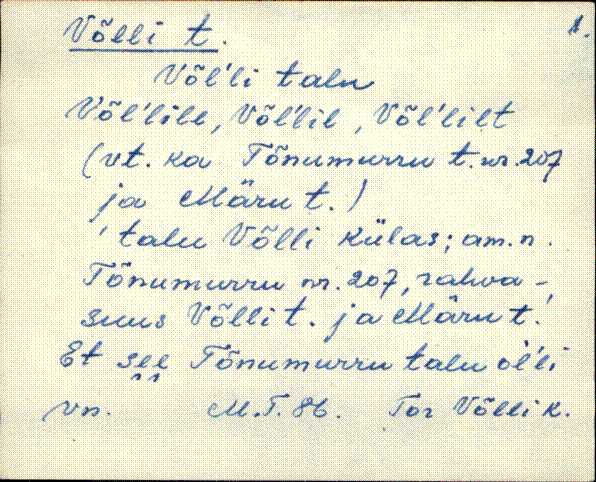 Võlli t. 1.
Võl'li talu
Võl'lile, Võl'lil, Võl'lilt
(vt. ka Tõnumurru t. nr. 207
ja Märu t.)
talu Võlli külas; am. n.
Tõnumurru nr. 207, rahva-
suus Võlli t. ja Märu t.
Et see Tõnumurru talu ol'li
vn. M.T. 86. Tor Võlli k.